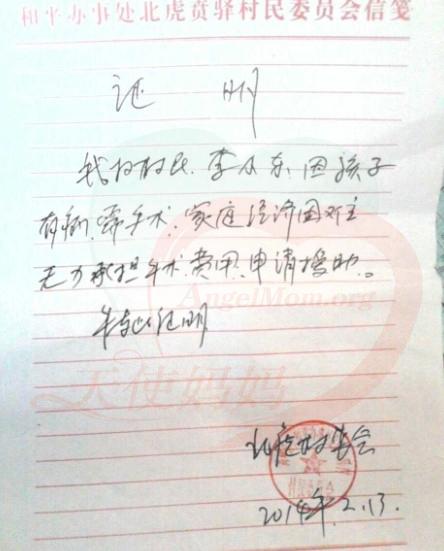 和平办事处北虎贲驿村民委员会信笺
证 明
我村村民李从东因孩子
有病、需手术、家庭经济困难
无力承担手术费用、申请援助。
特此证明
AngelMom.org
天使妈妈
北虎村委会
2014年.2.13.